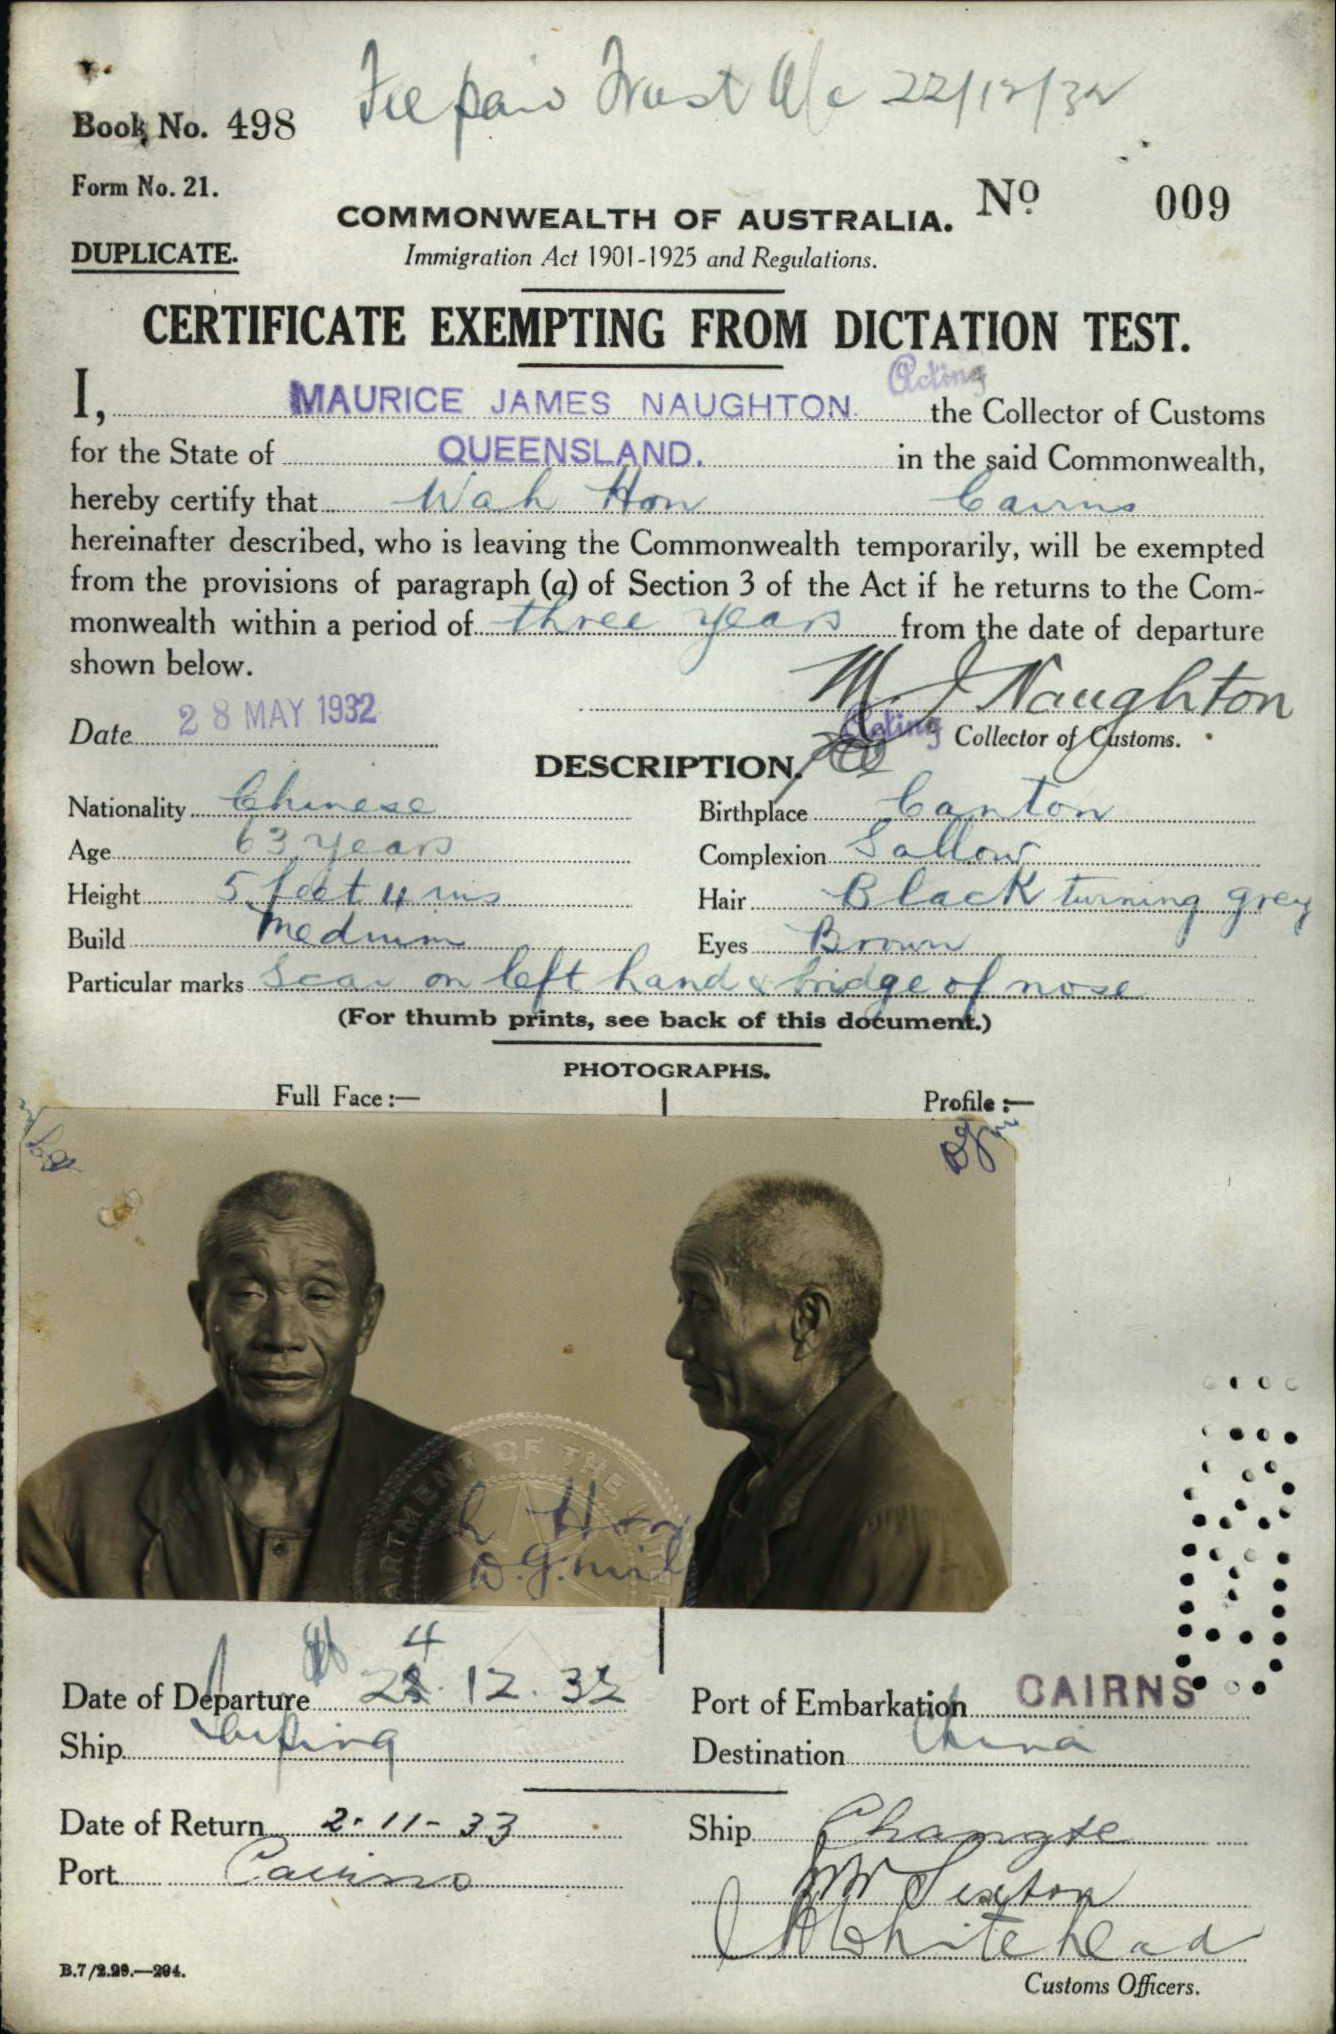 Fee paid Trust A/c 22/12/32
Book No. 498
Form No. 21.
No 009
COMMONWEALTH OF AUSTRALIA.
DUPLICATE.
Immigration Act 1901-1925 and Regulations.
CERTIFICATE EXEMPTING FROM DICTATION TEST.
Acting
I, MAURICE JAMES NAUGHTON. the Collector of Customs
for the State of QUEENSLAND. in the said Commonwealth,
hereby certify that Wah Hon Cairns
hereinafter described, who is leaving the Commonwealth temporarily, will be exempted
from the provisions of paragraph (a) of Section 3 of the Act if he returns to the Com-
monwealth within a period of three years from the date of departure
shown below.
M J Naughton
Date 28 MAY 1932
Acting Collector of Customs.
DESCRIPTION.
Nationality Chinese Birthplace Canton
Age 63 years Complexion Sallow
Height 5 feet 4 ins Hair Black turning grey
Build Medium Eyes Brown
Particular marks Scar on left hand & bridge of nose
(For thumb prints, see back of this document.)
PHOTOGRAPHS.
Full Face :— Profile :—
ARTMENT OF THE
h Hon
D.G.
4
Date of Departure 12. 32 Port of Embarkation CAIRNS
Ship Taiping Destination China
Date of Return 2-11-33 Ship Changte
Port Cairns
Sexton
Whitehead
B.7/2.29.—294.
Customs Officers.